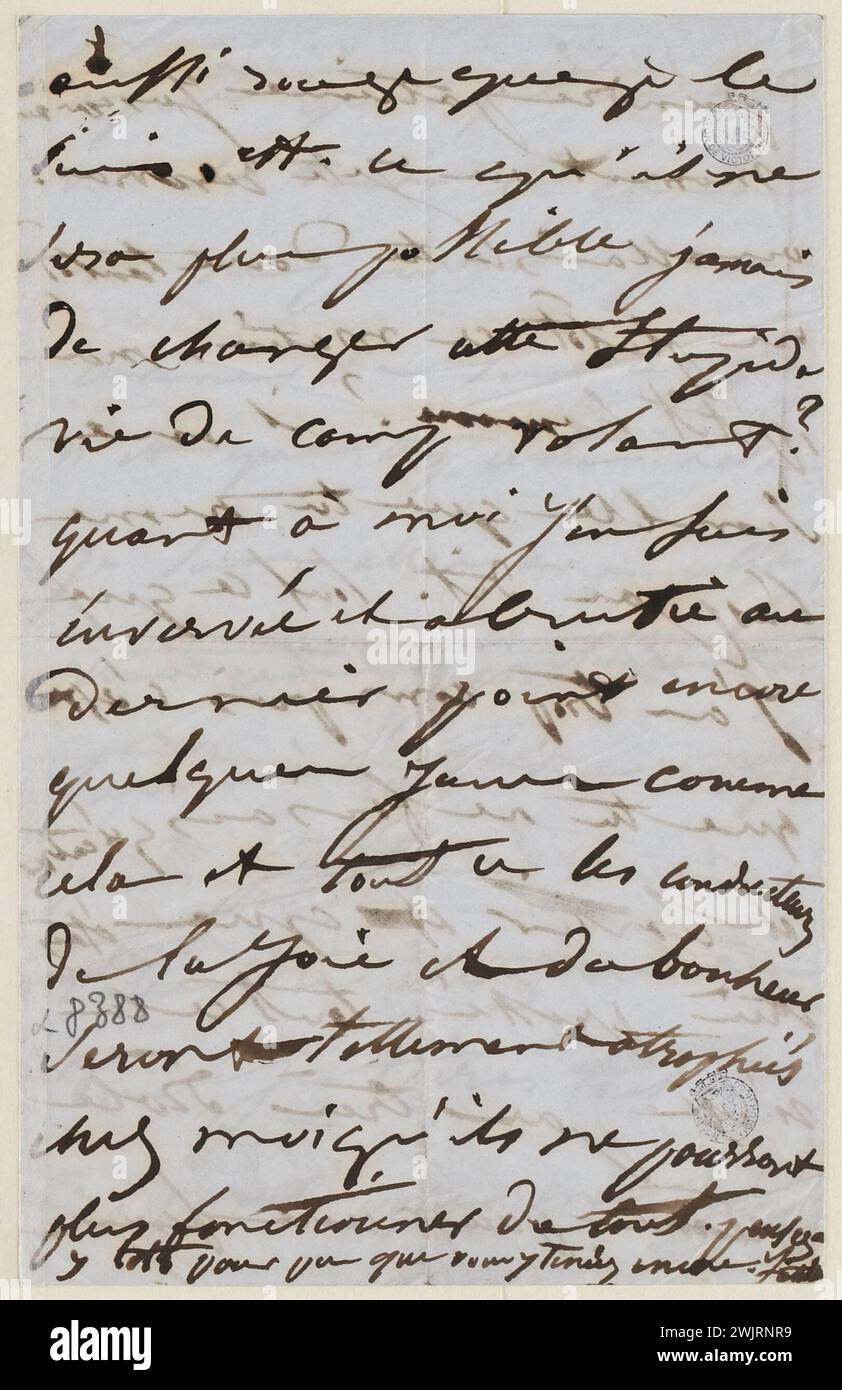 aussi rouge que je le
suis. Est-ce qu'il ne
sera plus possible jamais
de changer cette stupide
vie de camp volant ?
quant à moi j'en suis
énervée et abrutie au
dernier point encore
quelques jours comme
cela et tout les conducteurs
de la joie et du bonheur
seront tellement atrophiés
chez moi qu'ils ne pourront
plus fonctionner du tout. pensez
y pour peu que vous y teniez encore.
L 8388
alamy
Image ID: 2WJRNR9
www.alamy.com